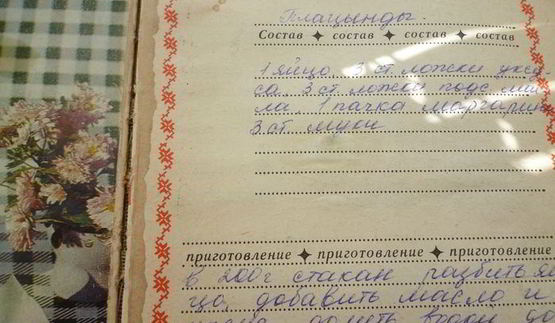 Плацынды.
Состав ✦ состав ✦ состав ✦ состав
1 яйцо, 3 ст. ложки уксу
са, 3 ст. ложки подс. мас
ла, 1 пачка маргарина
3 ст. муки
приготовление ✦ приготовление ✦ приготовление
В 200 г стакан разбить яй
цо, добавить масло и
воды до